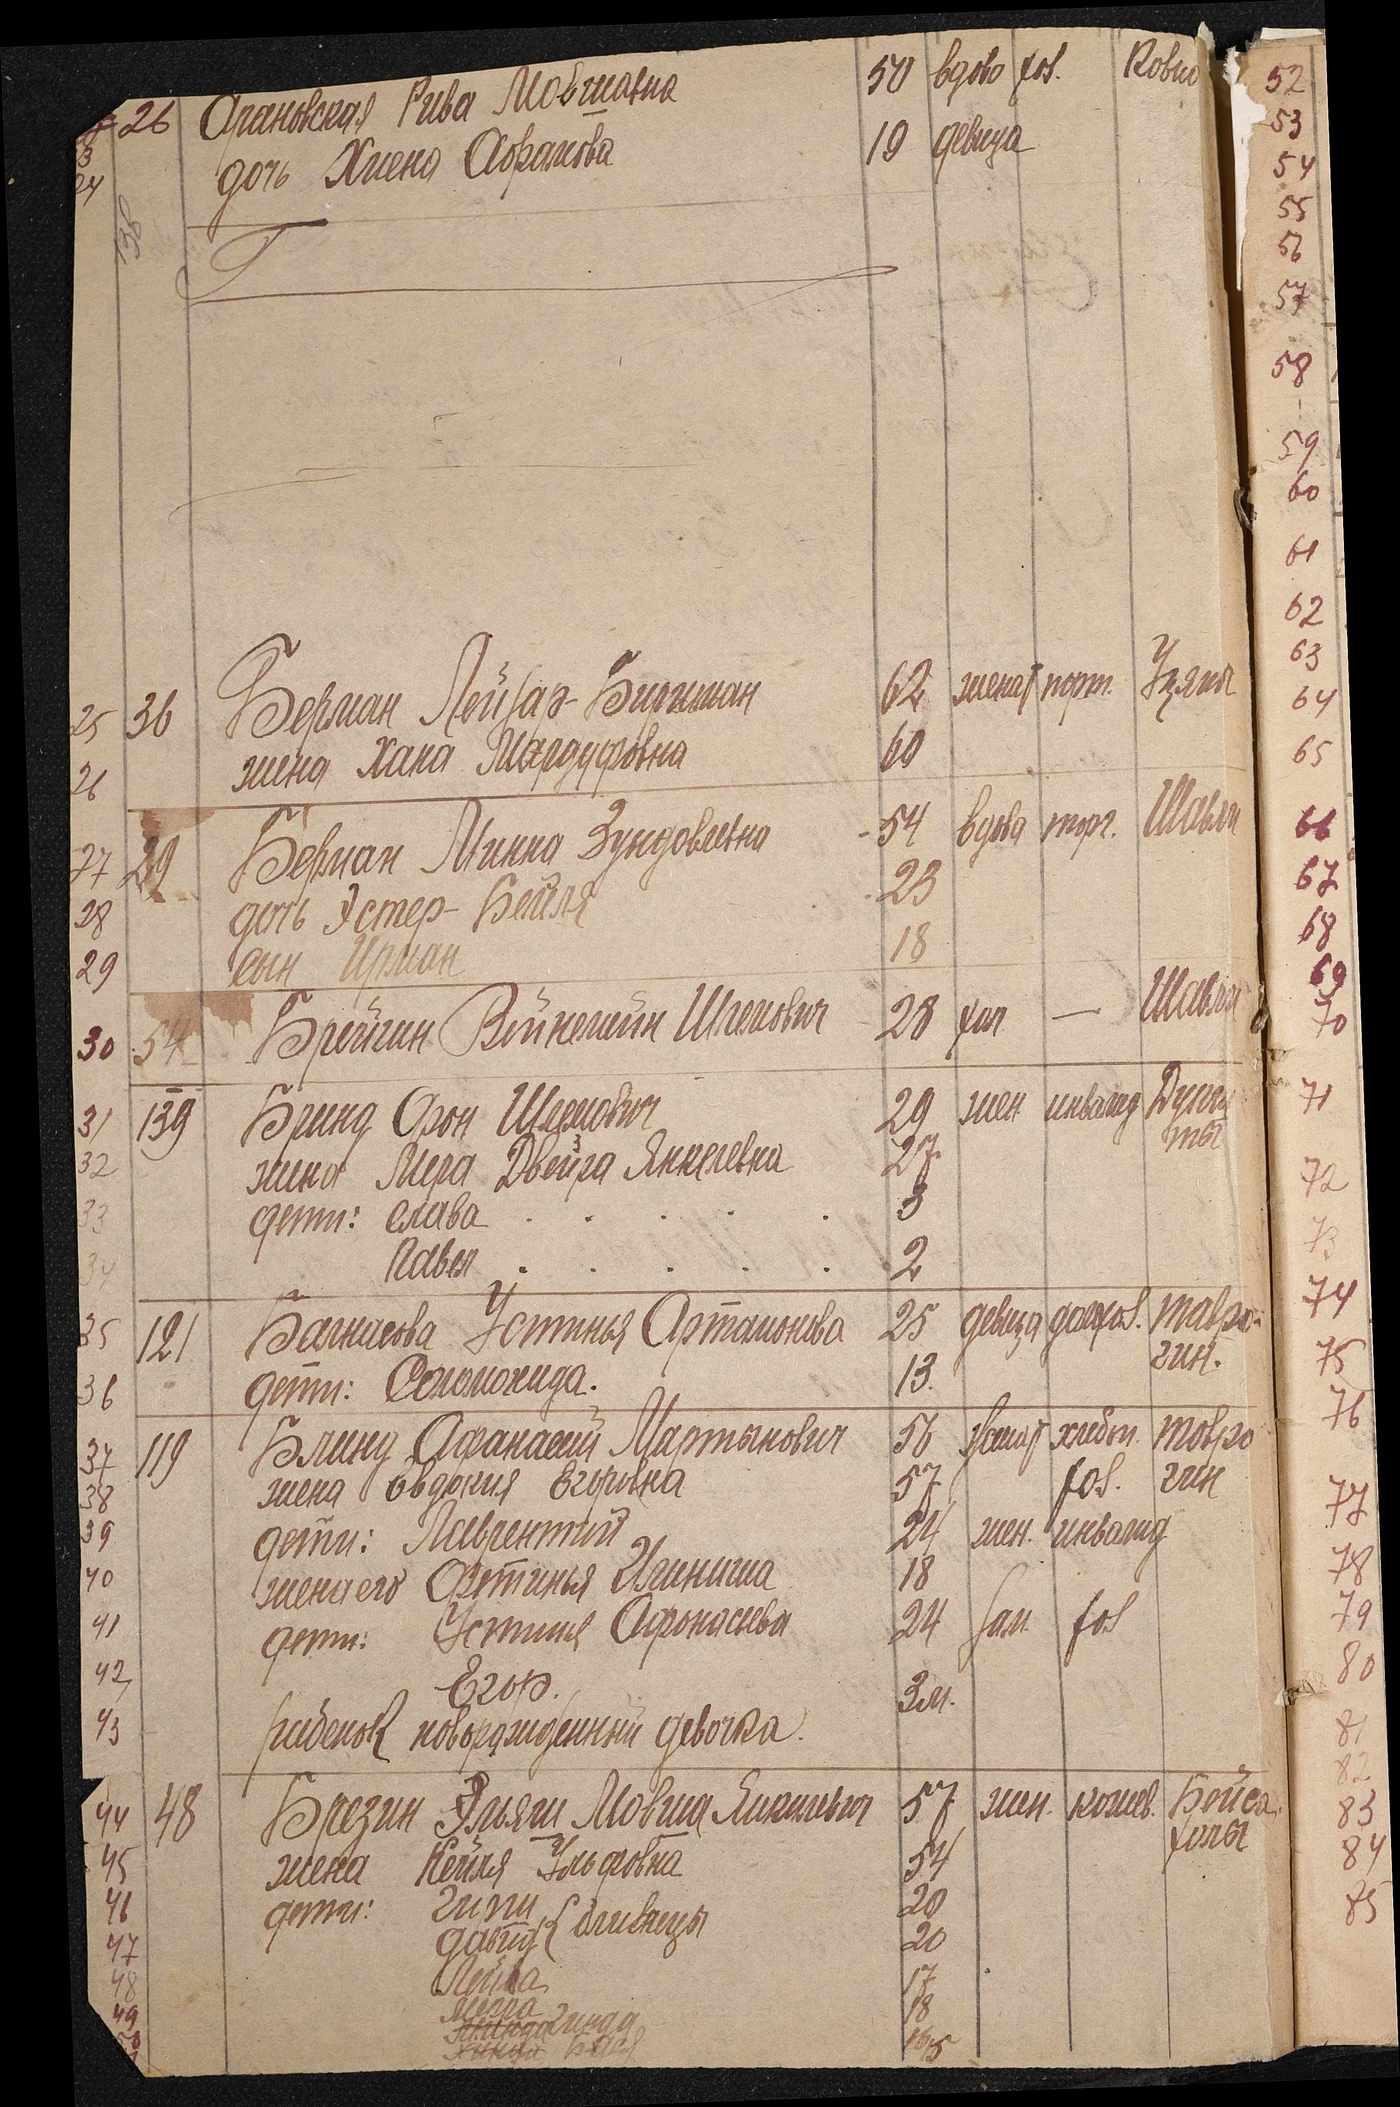 26 Арановская Рива Мовшавна 50 вдова хоз. Ковно
дочь Хиена Абрамова 19 девица
24
25 36 Берман Лейзар- 62 женат порт. Уцяны
26 жена Хана 60
27 29 Берман Минна Зунделевна 54 вдова торг. Шавли
28 дочь Эстер-Бейля 23
29 сын Ирман 18
30 54 Шлемович 28 хол — Шавли
31 139 Бринд Орон Шлемович 29 жен инвалид Дуся
32 жена Мера Двейра Янкелевна 27 ты
33 дети: Слава . . . . . 3
34 Павел . . . . . 2
35 121 Устинья Артамонова 25 девица Тавро-
36 дети: Соломонида. 13. гин.
37 119 Блинд Афанасий Мартынович 56 женат хлебоп. Тавро
38 жена Евдокия Егоровна 57 хоз. гин
39 дети: Лаврентий 24 жен. инвалид
40 жена его Фетинья 18
41 дети: Устиния Афонасиева 24 зам. хоз
42 Егор. 3 м.
43 рибенок новорожденный девочка.
44 48 Брезин Эльяш Мовша 57 жен. кожев. Бейса
45 жена Кейля Ульфовна 54 голы
46 дети: 20
47 давид } близнецы 20
48 Лейба 17
49 18
Бася
52
53
54
55
56
57
58
59
60
61
62
63
64
65
66
67
68
69
70
71
72
73
74
75
76
77
78
79
80
81
82
83
84
85